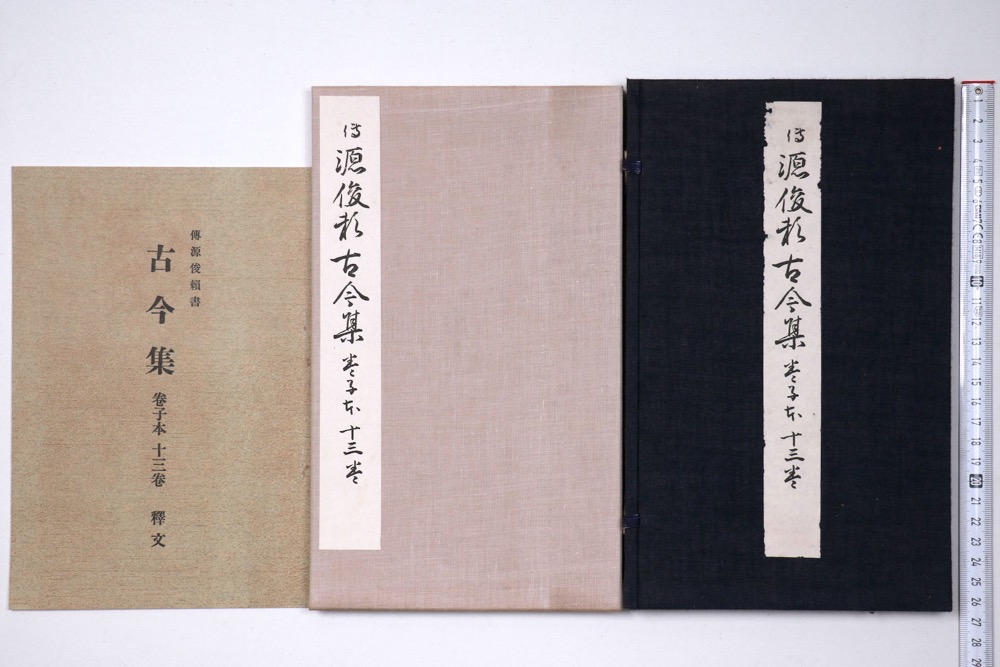 傳源俊賴書
古今集 卷子本 十三卷 釋文
傳源俊頼古今集 巻子本 十三巻
傳源俊頼古今集 巻子本 十三巻
1
2
3
4
5
6
7
8
9
10
11
12
13
14
15
16
17
18
19
20
21
22
23
24
25
26
27
28
29